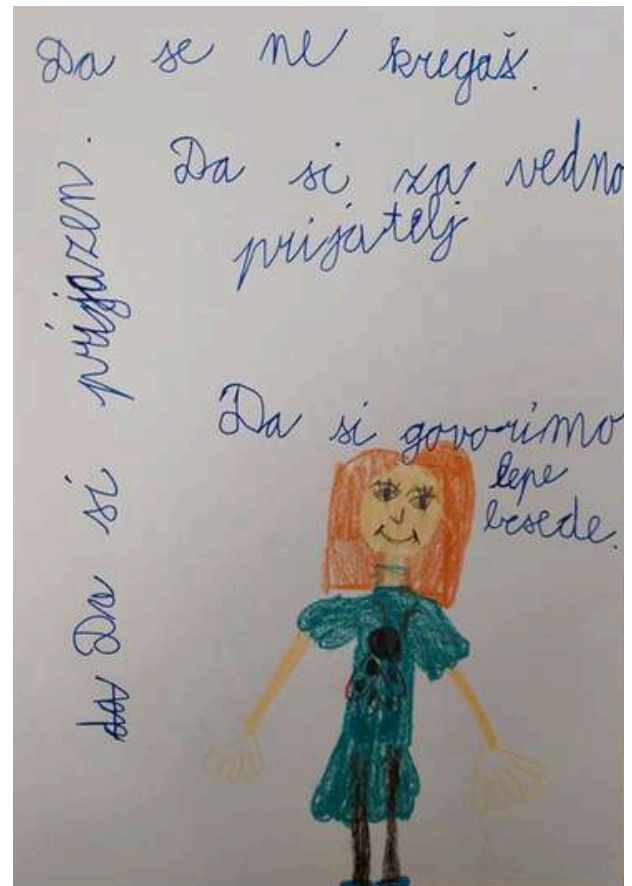 Da se ne kregaš.
Da si za vedno
prijatelj
da Da si prijazen.
Da si govorimo
lepe
besede.